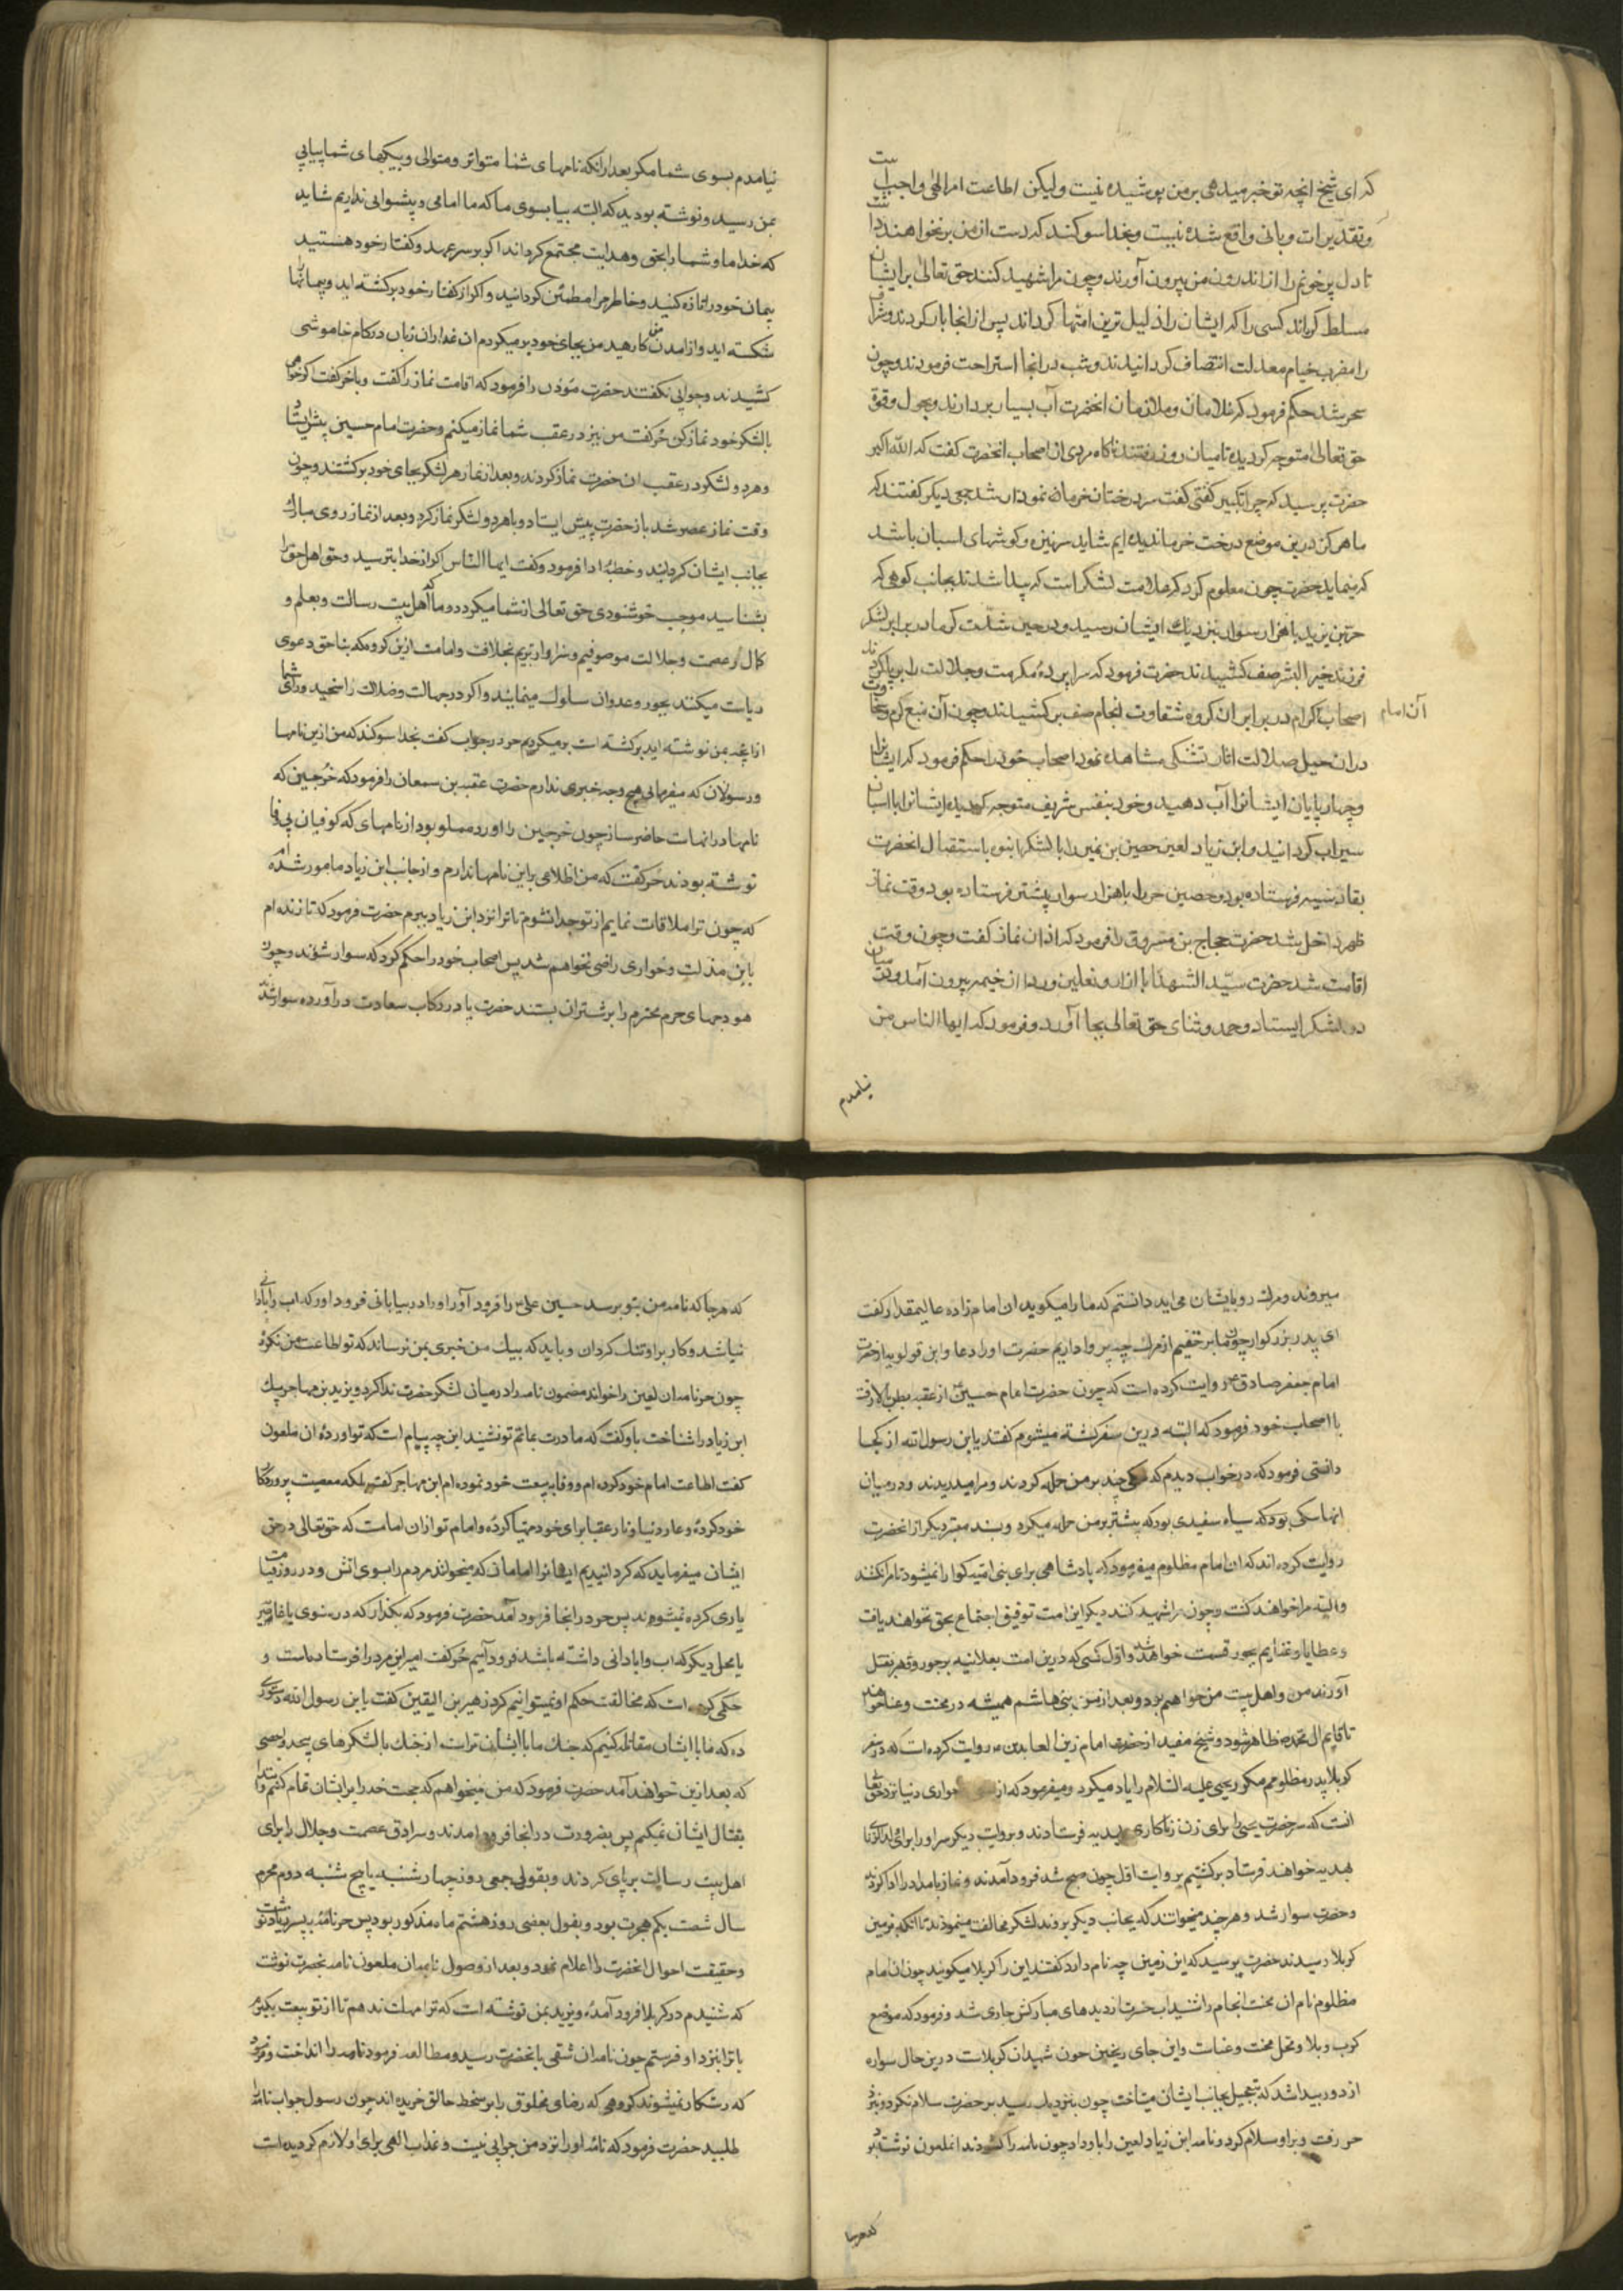 که ای شیخ انچه تو خبر میدهی بر من پوشیده نیست ولیکن اطاعت امر الهی واجب است
و تقدیرات ربانی واقع شده نیست و بخدا سوکند که دست از من بر نخواهند داشت
تا دل پرخونم را از اندرون من بیرون آورند و چون مرا شهید کنند حق تعالی بر ایشان
مسلط کرداند کسی را که ایشان را ذلیل ترین امتها کرداند پس از انجا بار کردند و شراف
را مضرب خیام معدلت انتصاف کردانیدند و شب در انجا استراحت فرمودند و چون
سحر شد حکم فرمود که غلامان و ملازمان انحضرت آب بسیار بردارند و بحول و قوة
حق تعالی متوجه کردیده تا میان روز رفتند ناکاه مردی از اصحاب انحضرت کفت که الله اکبر
حضرت پرسید که چرا تکبیر کفتی کفت سر درختان خرما نمودار شد جمعی دیکر کفتند که
ما هرکز درین موضع درخت خرما ندیده ایم شاید سر نیزه و کوشهای اسبان باشد
که مینماید حضرت چون معلوم کرد که علامت لشکر است که پیدا شد بجانب کوهی که
حر بن یزید با هزار سوار نزدیک ایشان رسید و در حین شدت کرما در برابر لشکر
فرزند خیر البشر صف کشیدند حضرت فرمود که سراپرده مکرمت و جلالت را بر پا کردند
اصحاب کرام در برابر ان کروه شقاوت انجام صف بر کشیدند و چون آن منبع کرم و سخاوت
آن امام
دران خیل ضلالت اثار تشنکی مشاهده نمود اصحاب خود را حکم فرمود که ایشانرا
و چهارپایان ایشانرا آب دهید و خود بنفس شریف متوجه کردیده ایشانرا با اسبان
سیراب کردانید و ابن زیاد لعین حصین بن نمیر را با لشکر انبوه باستقبال انحضرت
بقادسیه فرستاده بود و حصین حر را با هزار سوار پیشتر فرستاده بود وقت نماز
ظهر داخل شد حضرت حجاج بن مسروق را فرمود که اذان نماز کفت و چون وقت
اقامت شد حضرت سید الشهدا با ازار و نعلین و ردا از خیمه بیرون آمد و در میان
دو لشکر ایستاد و حمد و ثنای حق تعالی بجا آورد و فرمود که ایها الناس من
نیامدم
نیامدم بسوی شما مکر بعد از انکه نامهای شما متواتر و متوالی و پیکهای شما پیاپی
بمن رسید و نوشته بودید که البته بیا بسوی ما که ما امامی و پیشوایی نداریم شاید
که خدا ما و شما را بحق و هدایت مجتمع کرداند اکر بر سر عهد و کفتار خود هستید
پیمان خود را تازه کنید و خاطر مرا مطمئن کردانید و اکر از کفتار خود برکشته اید و پیمانها
شکسته اید و از امدن من کارهید من بجای خود برمیکردم ان غداران زبان در کام خاموشی
کشیدند و جوابی نکفتند حضرت مؤذن را فرمود که اقامت نماز را کفت و با حر کفت اکر خواهی
با لشکر خود نماز کن حر کفت من نیز در عقب شما نماز میکنم و حضرت امام حسین پیش ایستاد
و هر دو لشکر در عقب ان حضرت نماز کردند و بعد از نماز هر لشکر بجای خود برکشتند و چون
وقت نماز عصر شد باز حضرت پیش ایستاد و با هر دو لشکر نماز کرد و بعد از نماز روی مبارک
بجانب ایشان کردانید و خطبه ادا فرمود و کفت ایها الناس اکر از خدا بترسید و حق اهل حق را
بشناسید موجب خوشنودی حق تعالی از شما میکردد و ما که اهل بیت رسالت و بعلم و
کمال و عصمت و جلالت موصوفیم و سزاوارتریم بخلافت و امامت ازین کروه که بناحق دعوی
ریاست میکنند بجور و عدوان سلوک مینمایند و اکر در جهالت و ضلالت راسخید و رای شما
از انچه بمن نوشته اید برکشته است برمیکردیم حر در جواب کفت بخدا سوکند که من ازین نامها
و رسولان که میفرمایی هیچ وجه خبری ندارم حضرت عقبه بن سمعان را فرمود که خرجین که
نامها در انهاست حاضر ساز چون خرجین را اورد مملو بود از نامهای که کوفیان بی وفا
نوشته بودند حر کفت که من اطلاعی بر این نامها ندارم و از جانب ابن زیاد مامور شده ام
که چون ترا ملاقات نمایم از تو جدا نشوم تا ترا نزد ابن زیاد ببرم حضرت فرمود که تا زنده ام
باین مذلت و خواری راضی نخواهم شد پس اصحاب خود را حکم کرد که سوار شوند و چون
هودجهای حرم محترم را بر شتران بستند حضرت پا در رکاب سعادت در آورده سوار شد
میروند و مرک رو بایشان می اید دانستم که ما را میکوید ان امام زاده عالیمقدار کفت
ای پدر بزرکوار چون ما بر حقیم از مرک چه پروا داریم حضرت او را دعا
امام جعفر صادق روایت کرده است که چون حضرت امام حسین از عقبه بطن بالا رفت
با اصحاب خود فرمود که البته درین سفر کشته میشوم کفتند یا بن رسول الله از کجا
دانستی فرمود که در خواب دیدم که سکی چند بر من حمله کردند و مرا میدریدند و در میان
انها سکی بود که سیاه سفیدی بود که بیشتر بر من حمله میکرد و بسند معتبر دیکر از انحضرت
روایت کرده اند که ان امام مظلوم میفرمود که پادشاهی برای بنی امیه کوارا نمیشود تا مرا نکشند
والبته مرا خواهند کشت و چون مرا شهید کنند دیکر این امت توفیق اجتماع بحق نخواهند یافت
و عطایا و غنایم بجور قسمت خواهد شد و اول کسی که درین امت بعلانیه بر جور و قهر بقتل
آورند من و اهل بیت من خواهم بود و بعد از من بنی هاشم همیشه در محنت و عنا خواهند بود
تا قایم ال محمد ظاهر شود و شیخ مفید از حضرت امام زین العابدین روایت کرده است که در سفر
کربلا پدر مظلومم مکرر یحیی علیه السلام را یاد میکرد و میفرمود که از خواری دنیا نزد حق تعالی
انست که سر حضرت یحیی را برای زن زناکاری بهدیه فرستادند و بروایت دیکر سر او را برای
بهدیه خواهند فرستاد برکشتیم بروایت اول چون صبح شد فرود آمدند و نماز بامداد را ادا کردند
و حضرت سوار شد و هر چند میخواستند که بجانب دیکر بروند لشکر مخالفت مینمودند تا انکه بزمین
کربلا رسیدند حضرت پرسید که این زمین چه نام دارد کفتند این را کربلا میکویند چون ان امام
مظلوم نام ان محنت انجام را شنید اب حسرت از دیدهای مبارکش جاری شد و فرمود که موضع
کرب و بلا و محل محنت و عناست و این جای ریختن خون شهیدان کربلاست درین حال سواره
از دور پیدا شد که بتعجیل بجانب ایشان میتاخت چون بنزدیک رسید بر حضرت سلام نکرد و نزد
حر رفت و بر او سلام کرد و نامه ابن زیاد لعین را باو داد چون نامه را کشودند انملعون نوشته بود
که هرجا
که هرجا که نامه من بتو برسد حسین علی را فرود آور او را در بیابانی فرود اور که اب و ابادانی
نباشد و کار بر او تنک کردان و باید که پیک من خبری بمن برساند که تو اطاعت من نکرده
چون حر نامه ان لعین را خواند مضمون نامه را در میانی لشکر حضرت ندا کرد و یزید بن مهاجر پیک
ابن زیاد را شناخت باو کفت که مادرت بماتم تو نشیند این چه پیام است که تو اورده ان ملعون
کفت اطاعت امام خود کرده ام و وفا به بیعت خود نموده ام ابن مهاجر کفت بلکه معصیت پروردکار
خود کرده و عار دنیا و نار عقبا برای خود مهیا کرده و امام تو از ان امامست که حق تعالی در حق
ایشان میفرماید که کردانیدیم ایشانرا امامان که میخوانند مردم را بسوی اتش و در روز قیامت
یاری کرده نمیشوند پس حر در انجا فرود آمد حضرت فرمود که بکذار که در نینوی یا غاضریه
یا محل دیکر که اب و ابادانی داشته باشد فرود آییم حر کفت امیر این مرد را فرستاده است و
حکمی کرده است که مخالفت حکم او نمیتوانیم کرد زهیر بن القین کفت یا بن رسول الله دستوری
ده که ما با ایشان مقاتله کنیم که جنک ما با ایشان آسانتر است از جنک با لشکرهای بیحد و احصی
که بعد ازین خواهند آمد حضرت فرمود که من میخواهم که حجت خدا را بر ایشان تمام کنم و ابتدا
بقتال ایشان نمیکنم پس بضرورت در انجا فرود امدند و سرادق عصمت و جلال را برای
اهل بیت رسالت بر پای کردند و بقولی جمعی روز چهارشنبه یا پنج شنبه دوم محرم
سال شصت یکم هجرت بود و بقول بعضی روز هشتم ماه مذکور بود پس حر نامه به پسر زیاد نوشت
و حقیقت احوال انحضرت را اعلام نمود و بعد از وصول نامه ان ملعون نامه بحضرت نوشت
که شنیدم در کربلا فرود آمده و یزید بمن نوشته است که ترا مهلت ندهم تا از تو بیعت بکیرم
یا ترا بنزد او فرستم چون نامه ان شقی بانحضرت رسید و مطالعه فرمود نامه را انداخت و فرمود
که رستکار نمیشوند کروهی که رضای مخلوق را بر سخط خالق خریده اند چون رسول جواب نامه را
طلبید حضرت فرمود که نامه او را نزد من جوابی نیست و عذاب الهی برای او لازم کردیده است